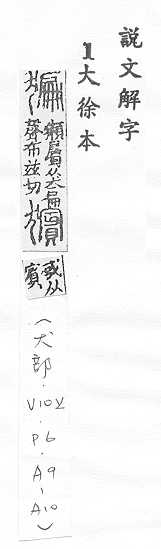 說文解字
1大徐本
猵 獺屬从犬扁
聲布兹切 獱 或从
賓 (犬部・V10上・P6・A9-A10)